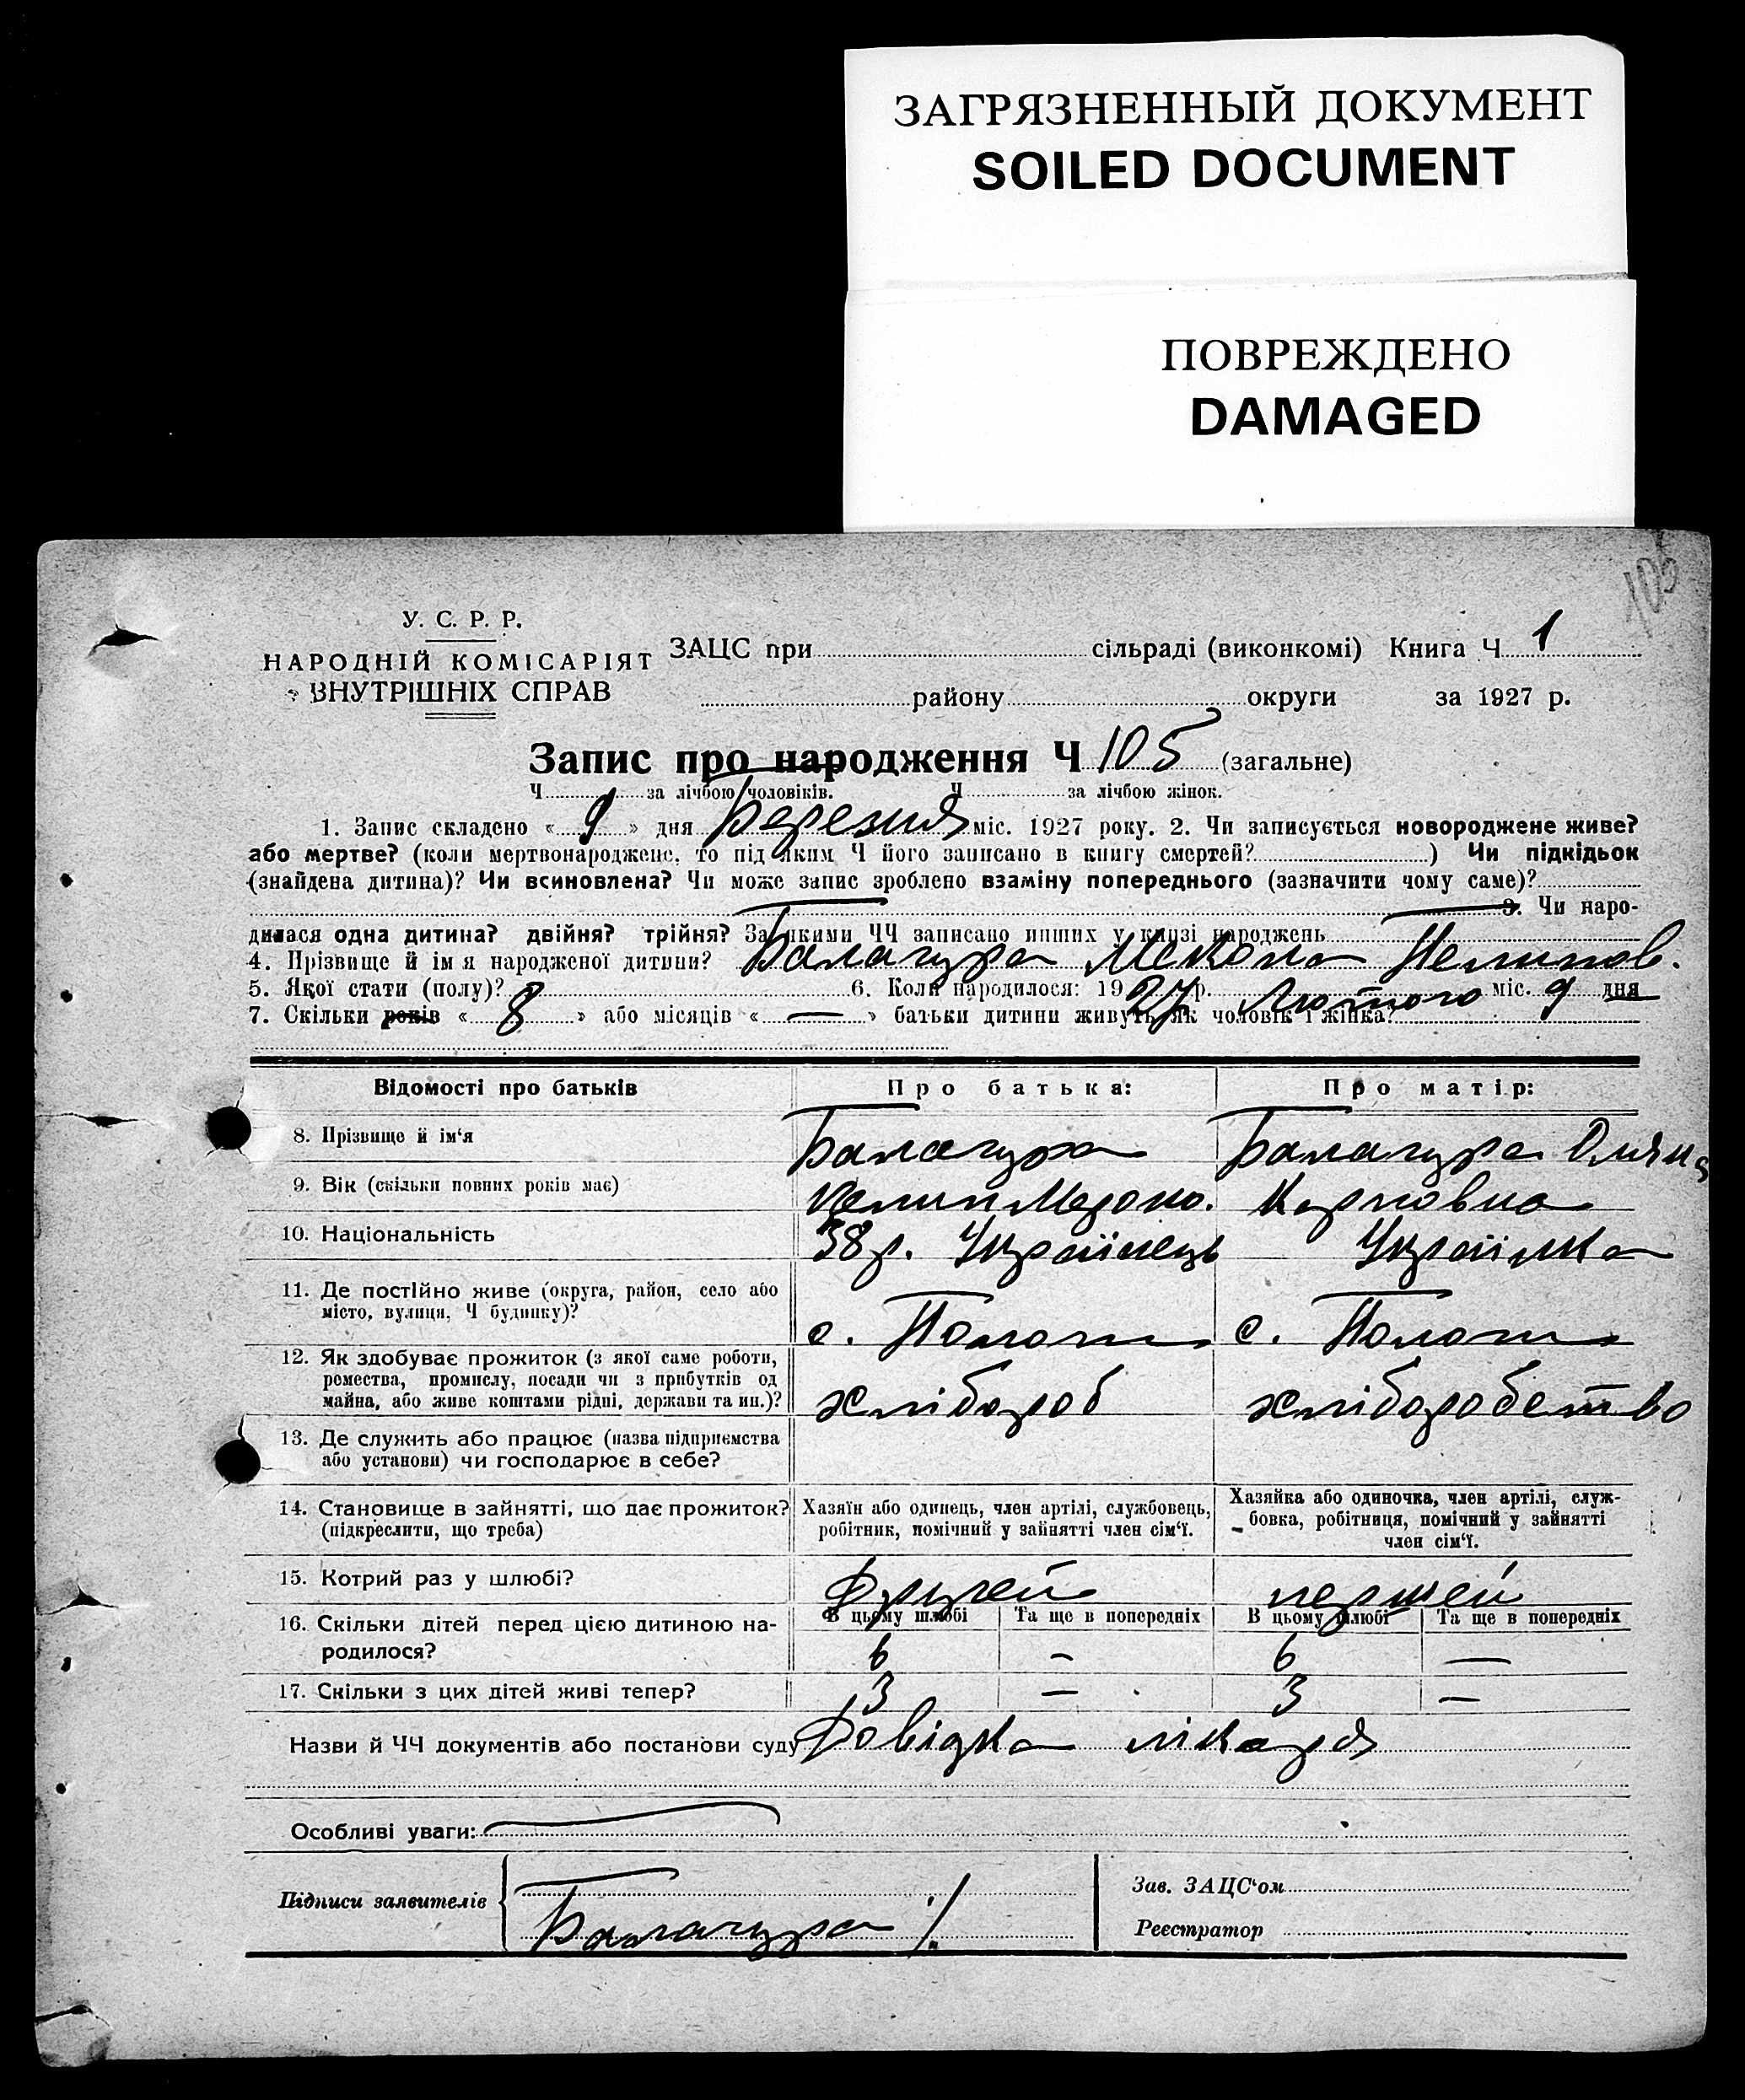 ЗАГРЯЗНЕННЫЙ ДОКУМЕНТ
SOILED DOCUMENT
ПОВРЕЖДЕНО
DAMAGED
105
У. С. Р. Р.
НАРОДНІЙ КОМІСАРІЯТ
ВНУТРІШНІХ СПРАВ
ЗАЦС при сільраді (виконкомі) Книга Ч 1
району округи за 1927 р.
Запис про народження Ч 105 (загальне)
Ч за лічбою чоловіків. Ч за лічбою жінок.
1. Запис складено « 9 » дня Березня міс. 1927 року. 2. Чи записується новороджене живе?
або мертве? (коли мертвонароджене, то під яким Ч його записано в книгу смертей? ) Чи підкідьок
(знайдена дитина)? Чи всиновлена? Чи може запис зроблено взаміну попереднього (зазначити чому саме)?
3. Чи наро-
дилася одна дитина? двійня? трійня? За якими ЧЧ записано инших у книзі народжень
4. Прізвище й ім я народженої дитини? Балагура Мекола Пелипов.
5. Якої стати (полу)? 6. Коли народилося: 1927 р. Лютого міс. 9 дня
7. Скільки років « 8 » або місяців « — » батьки дитини живуть як чоловік і жінка?
Відомості про батьків Про батька: Про матір:
8. Прізвище й ім‘я Балагура Балагура
9. Вік (скільки повних років має) Карповна
10. Національність 38 р. Українець Українка
11. Де постійно живе (округа, район, село або
місто, вулиця, Ч будинку)? с. Пологи с. Пологи
12. Як здобуває прожиток (з якої саме роботи,
ремества, промислу, посади чи з прибутків од
майна, або живе коштами рідні, держави та ин.)? хлібороб хліборобство
13. Де служить або працює (назва підприємства
або установи) чи господарює в себе?
14. Становище в зайнятті, що дає прожиток?
(підкреслити, що треба)
Хазяїн або одинець, член артілі, службовець,
робітник, помічний у зайнятті член сім‘ї.
Хазяйка або одиночка, член артілі, служ-
бовка, робітниця, помічний у зайнятті
член сім‘ї.
15. Котрий раз у шлюбі? Другей першей
В цьому шлюбі Та ще в попередніх В цьому шлюбі Та ще в попередніх
16. Скільки дітей перед цією дитиною на-
родилося? 6 — 6 —
17. Скільки з цих дітей живі тепер? 3 — 3 —
Назви й ЧЧ документів або постанови суду Довідка лікаря
Особливі уваги:
Підписи заявителів Балагура
Зав. ЗАЦС‘ом
Реєстратор